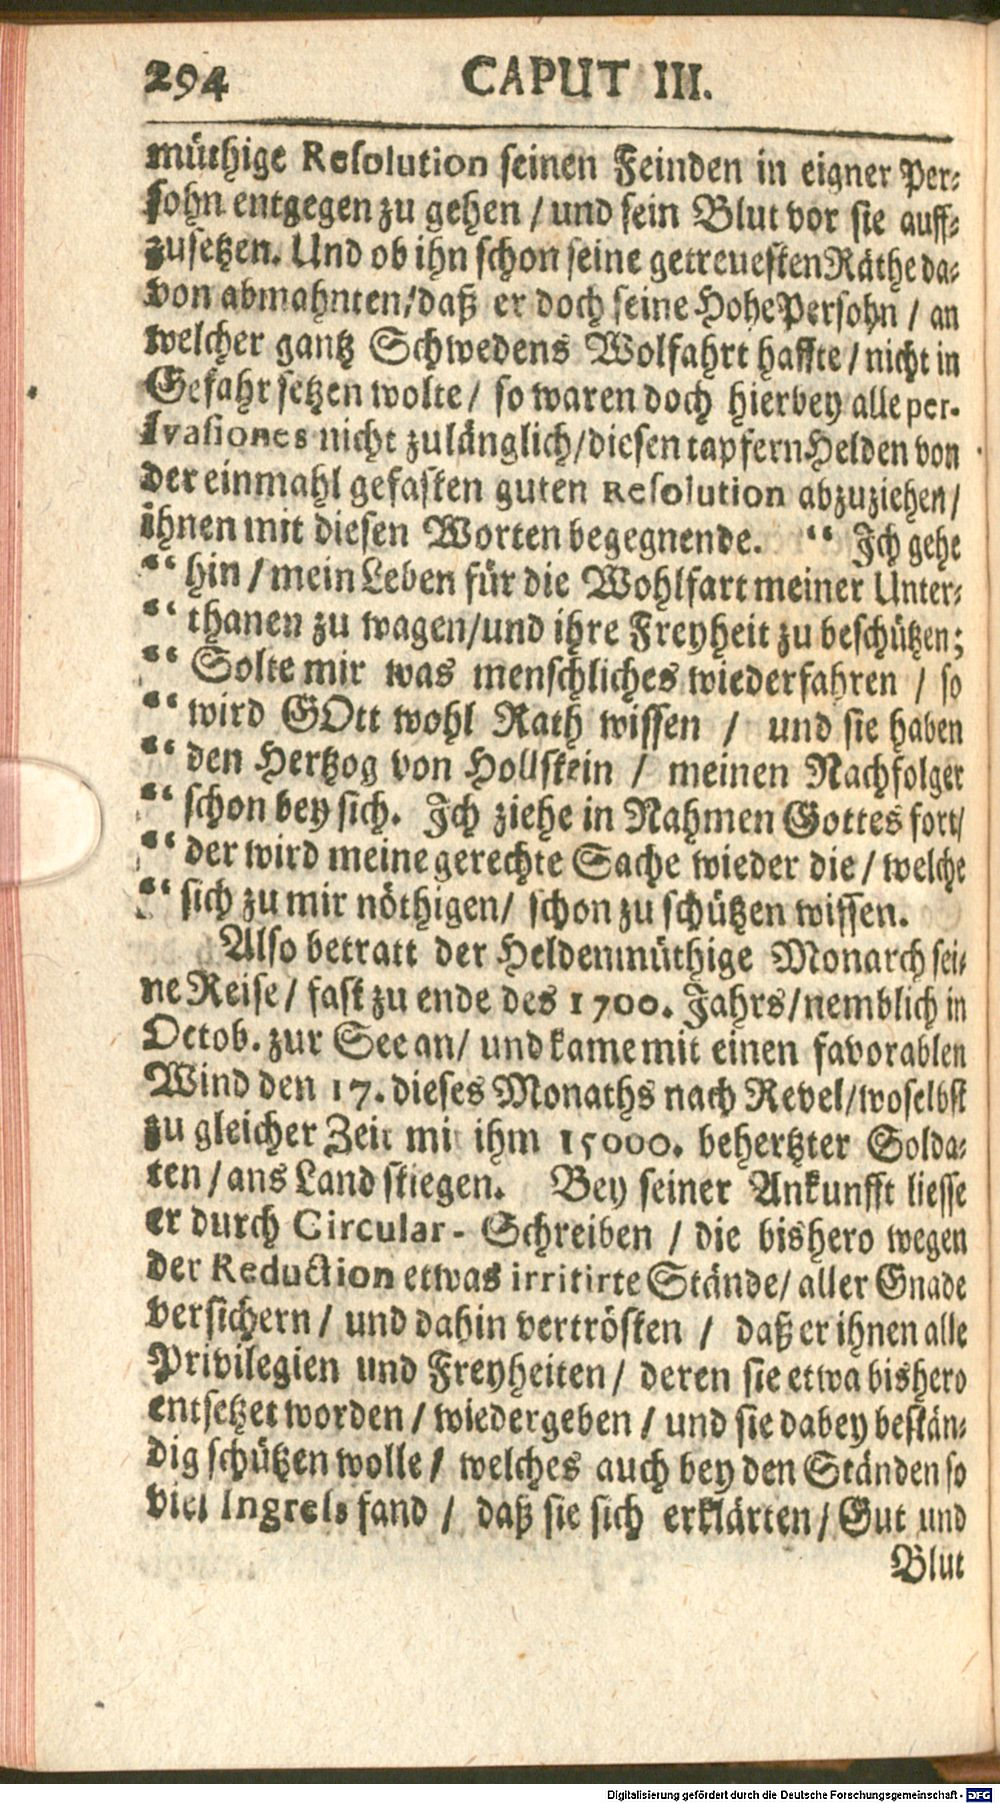 294 CAPUT III.
müthige Resolution seinen Feinden in eigner Per-
sohn entgegen zu gehen / und sein Blut vor sie auff-
zusetzen. Und ob ihn schon seine getreuesten Räthe da-
von abmahnten / daß er doch seine Hohe Persohn / an
welcher gantz Schwedens Wolfahrt haffte / nicht in
Gefahr setzen wolte / so waren doch hierbey alle per-
svasiones nicht zulänglich / diesen tapfern Helden von
der einmahl gefasten guten Resolution abzuziehen /
ihnen mit diesen Worten begegnende. “ Ich gehe
“ hin / mein Leben für die Wohlfart meiner Unter-
“ thanen zu wagen / und ihre Freyheit zu beschützen;
“ Solte mir was menschliches wiederfahren / so
“ wird GOtt wohl Rath wissen / und sie haben
“ den Hertzog von Hollstein / meinen Nachfolger
“ schon bey sich. Ich ziehe in Nahmen Gottes fort /
“ der wird meine gerechte Sache wieder die / welche
“ sich zu mir nöthigen / schon zu schützen wissen.
Also betratt der Heldenmüthige Monarch sei-
ne Reise / fast zu ende des 1700. Jahrs / nemblich in
Octob. zur See an / und kame mit einen favorablen
Wind den 17. dieses Monaths nach Revel / woselbst
zu gleicher Zeit mit ihm 15000. behertzter Solda-
ten / ans Land stiegen. Bey seiner Ankunfft liesse
er durch Circular- Schreiben / die bishero wegen
der Reduction etwas irritirte Stände / aller Gnade
versichern / und dahin vertrösten / daß er ihnen alle
Privilegien und Freyheiten / deren sie etwa bishero
entsetzet worden / wiedergeben / und sie dabey bestän-
dig schützen wolle / welches auch bey den Ständen so
viel Ingress fand / daß sie sich erklärten / Gut und
Blut
Digitalisierung gefördert durch die Deutsche Forschungsgemeinschaft - DFG